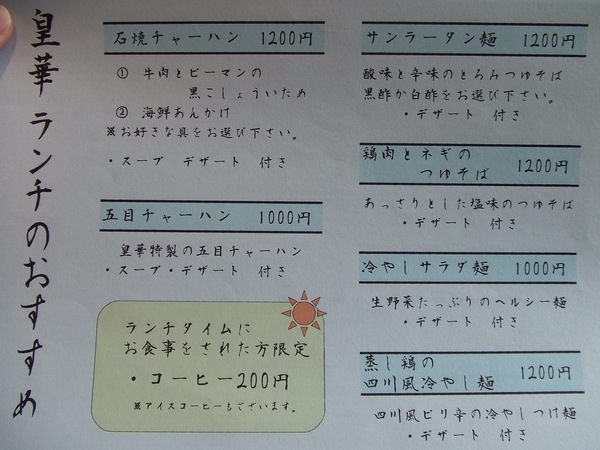 皇華ランチのおすすめ
石焼チャーハン 1200円
① 牛肉とピーマンの
黒こしょういため
② 海鮮あんかけ
※お好きな具をお選び下さい。
・スープ デザート 付き
五目チャーハン 1000円
皇華特製の五目チャーハン
・スープ・デザート 付き
ランチタイムに
お食事をされた方限定
・コーヒー200円
※アイスコーヒーもございます。
サンラータン麺 1200円
酸味と辛味のとろみつゆそば
黒酢か白酢をお選び下さい。
・デザート 付き
鶏肉とネギの
つゆそば 1200円
あっさりとした塩味のつゆそば
・デザート 付き
冷やしサラダ麺 1000円
生野菜たっぷりのヘルシー麺
・デザート 付き
蒸し鶏の
四川風冷やし麺 1200円
四川風ピリ辛の冷やしつけ麺
・デザート 付き